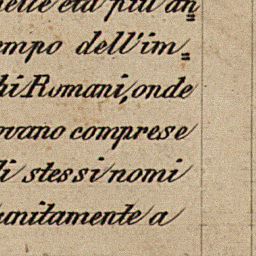 delle età più an=
empo dell'im=
hi Romani, onde
ovano comprese
li stessi nomi
unitamente a